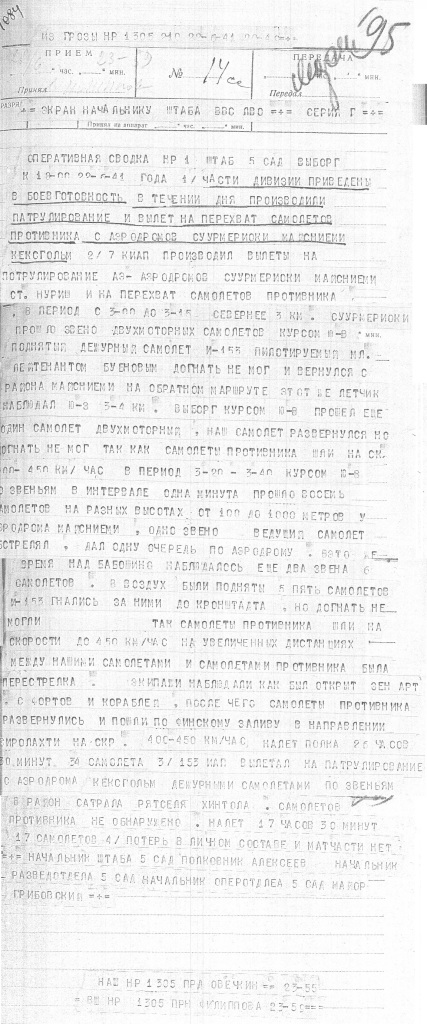 1084
ИЗ ГРОЗЫ НР 1305 210 22-6-41 22-10=
95
ПРИЕМ
ПЕРЕДАЧА
час. мин.
№ 14сс
Принял
Передал
=+= ЭКРАН НАЧАЛЬНИКУ ШТАБА ВВС ЛВО =+= СЕРИЯ Г =+=
ОПЕРАТИВНАЯ СВОДКА НР 1 ШТАБ 5 САД ВЫБОРГ
К 18-00 22-6-41 ГОДА 1/ ЧАСТИ ДИВИЗИИ ПРИВЕДЕНЫ
В БОЕВГОТОВНОСТЬ В ТЕЧЕНИИ ДНЯ ПРОИЗВОДИЛИ
ПАТРУЛИРОВАНИЕ И ВЫЛЕТ НА ПЕРЕХВАТ САМОЛЕТОВ
ПРОТИВНИКА С АЭРОДРОМОВ СУУРМЕРИОКИ МАЙСНИЕМИ
КЕКСГОЛЬМ 2/ 7 КИАП ПРОИЗВОДИЛ ВЫЛЕТЫ НА
ПОТРУЛИРОВАНИЕ АЗ- АЭРОДРОМОВ СУУРМЕРИОКИ МАЙСНИЕМИ
СТ. НУРИШ И НА ПЕРЕХВАТ САМОЛЕТОВ ПРОТИВНИКА .
В ПЕРИОД С 3-00 ДО 3-15 СЕВЕРНЕЕ 3 КМ . СУУРМЕРИОКИ
ПРОШЛО ЗВЕНО ДВУХМОТОРНЫХ САМОЛЕТОВ КУРСОМ Ю-В
ПОДНЯТЫЙ ДЕЖУРНЫЙ САМОЛЕТ И-153 ПИЛОТИРУЕМЫЙ МЛ.
ЛЕЙТЕНАНТОМ БУБНОВЫМ ДОГНАТЬ НЕ МОГ И ВЕРНУЛСЯ С
РАЙОНА МАЙСНИЕМИ НА ОБРАТНОМ МАРШРУТЕ ЭТОТ ЖЕ ЛЕТЧИК
НАБЛЮДАЛ Ю-З 3-4 КМ . ВЫБОРГ КУРСОМ Ю-В ПРОШЕЛ ЕЩЕ
ОДИН САМОЛЕТ ДВУХМОТОРНЫЙ , НАШ САМОЛЕТ РАЗВЕРНУЛСЯ НО
ОГНАТЬ НЕ МОГ ТАК КАК САМОЛЕТЫ ПРОТИВНИКА ШЛИ НА СК.
00- 450 КМ/ ЧАС В ПЕРИОД 3-20 - 3-40 КУРСОМ Ю-В
О ЗВЕНЬЯМ В ИНТЕРВАЛЕ ОДНА МИНУТА ПРОШЛО ВОСЕМЬ
АМОЛЕТОВ НА РАЗНЫХ ВЫСОТАХ ОТ 100 ДО 1000 МЕТРОВ У
ЭРОДРОМА МАЙСНИЕМИ , ОДНО ЗВЕНО ВЕДУЩИЙ САМОЛЕТ
БСТРЕЛЯЛ , ДАЛ ОДНУ ОЧЕРЕДЬ ПО АЭРОДРОМУ .
ВРЕМЯ НАД БАБОШИНО НАБЛЮДАЛОСЬ ЕЩЕ ДВА ЗВЕНА 6
САМОЛЕТОВ . В ВОЗДУХ БЫЛИ ПОДНЯТЫ 5 ПЯТЬ САМОЛЕТОВ
И-153 ГНАЛИСЬ ЗА НИМИ ДО КРОНШТАДТА , НО ДОГНАТЬ НЕ
МОГЛИ ТАК САМОЛЕТЫ ПРОТИВНИКА ШЛИ НА
СКОРОСТИ ДО 450 КМ/ЧАС НА УВЕЛИЧЕННЫХ ДИСТАНЦИЯХ
МЕЖДУ НАШИМИ САМОЛЕТАМИ И САМОЛЕТАМИ ПРОТИВНИКА БЫЛА
ПЕРЕСТРЕЛКА . ЭКИПАЖИ НАБЛЮДАЛИ КАК БЫЛ ОТКРЫТ ЗЕН АРТ
. С ФОРТОВ И КОРАБЛЕЙ , ПОСЛЕ ЧЕГО САМОЛЕТЫ ПРОТИВНИКА
РАЗВЕРНУЛИСЬ И ПОШЛИ ПО ФИНСКОМУ ЗАЛИВУ В НАПРАВЛЕНИИ
ВИРОЛАХТИ НА-СКР . 400-450 КМ/ЧАС НАЛЕТ ПОЛКА 26 ЧАСОВ
30 МИНУТ 34 САМОЛЕТА 3/ 153 ИАП ВЫЛЕТАЛ НА ПАТРУЛИРОВАНИЕ
С АЭРОДРОМА КЕКСГОЛЬМ ДЕЖУРНЫМИ САМОЛЕТАМИ ПО ЗВЕНЬЯМ
В РАЙОН САТРАЛА РЯТСЕЛЯ ХИНТОЛА . САМОЛЕТОВ
ПРОТИВНИКА НЕ ОБНАРУЖЕНО . НАЛЕТ 17 ЧАСОВ 30 МИНУТ
17 САМОЛЕТОВ 4/ ПОТЕРЬ В ЛИЧНОМ СОСТАВЕ И МАТЧАСТИ НЕТ
=+= НАЧАЛЬНИК ШТАБА 5 САД ПОЛКОВНИК АЛЕКСЕЕВ НАЧАЛЬНИК
РАЗВЕДОТДЕЛА 5 САД НАЧАЛЬНИК ОПЕРОТДЛЕА 5 САД МАЙОР
ГРИБОВСКИЙ =+=
НАШ НР 1305 ПРД ОВЕЧКИН =+= 23-55
= ВШ НР 1305 ПРН ФИЛИППОВА 23-50===